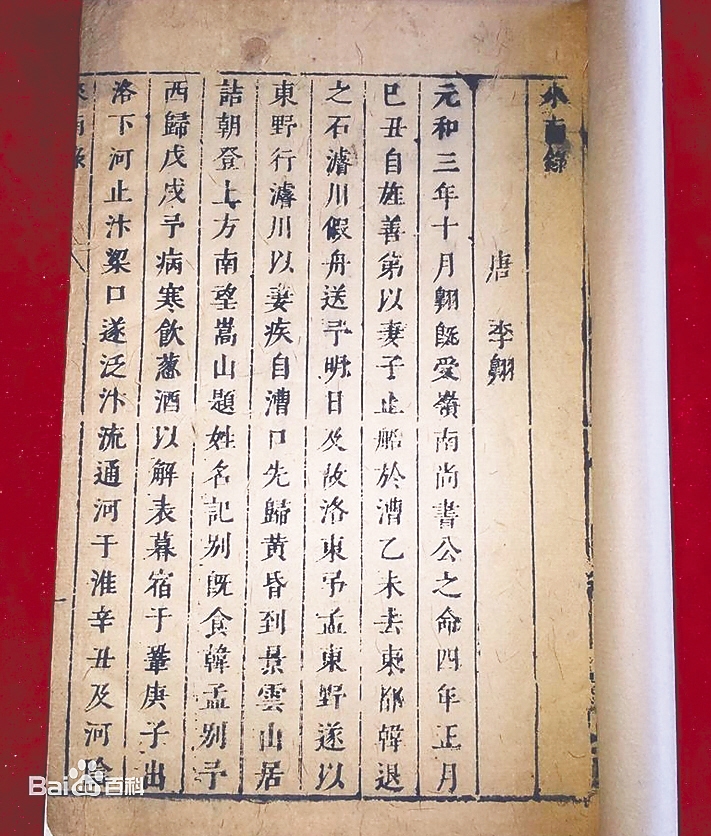 來南錄
唐 李翱
元和三年十月翱既受嶺南尚書公之命四年正月
己丑自旌善第以妻子止船於漕乙未去東都韓退
之石濬川假舟送予明日及故洛東弔孟東野遂以
東野行濬川以妻疾自漕口先歸黃昏到景雲山居
詰朝登上方南望嵩山題姓名記別既食韓孟別予
西歸戊戌予病寒飲蔥酒以解表暮宿于鞏庚子出
洛下河止汴梁口遂泛汴流通河于淮辛丑及河陰
來南錄
Baidu百科